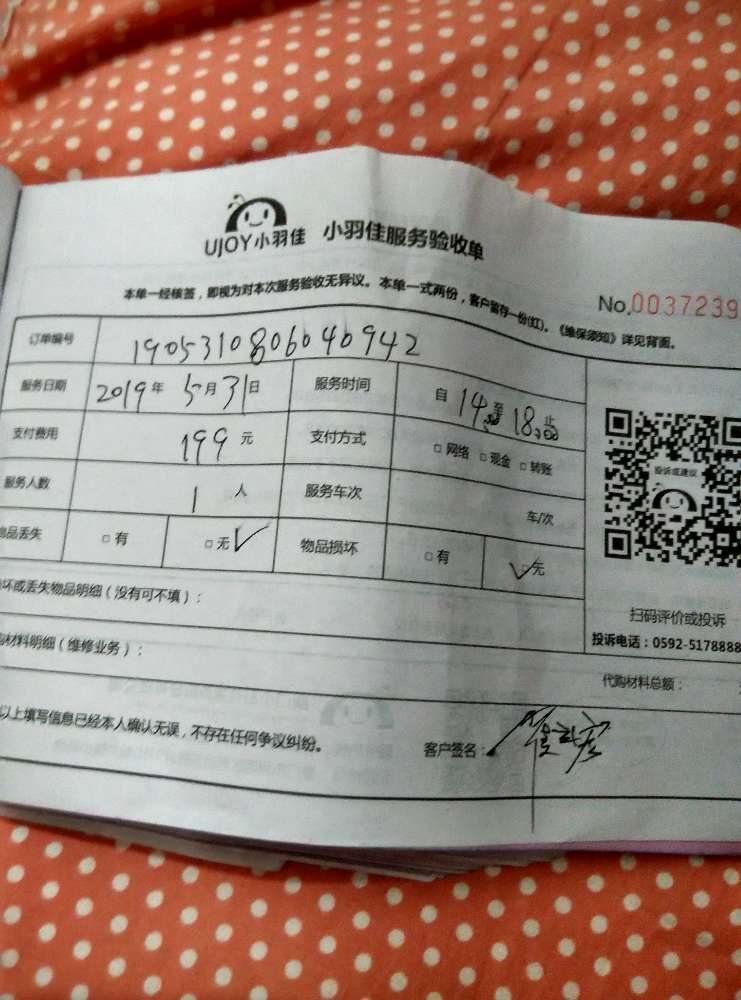 UJOY小羽佳 小羽佳服务验收单
No.0037239
本单一经核签，即视为对本次服务验收无异议。本单一式两份，客户留存一份(红)。《维保须知》详见背面。
订单编号 190531080604 0942
服务日期 2019年 5月31日 服务时间 自14:00至18:00止
支付费用 199元 支付方式 □网络 □现金 □转账
服务人数 1人 服务车次 车/次
物品丢失 □有 □无✓ 物品损坏 □有 ✓无
投诉或建议
扫码评价或投诉
投诉电话：0592-5178888
坏或丢失物品明细（没有可不填）：
材料明细（维修业务）：
代购材料总额：
以上填写信息已经本人确认无误，不存在任何争议纠纷。
客户签名：